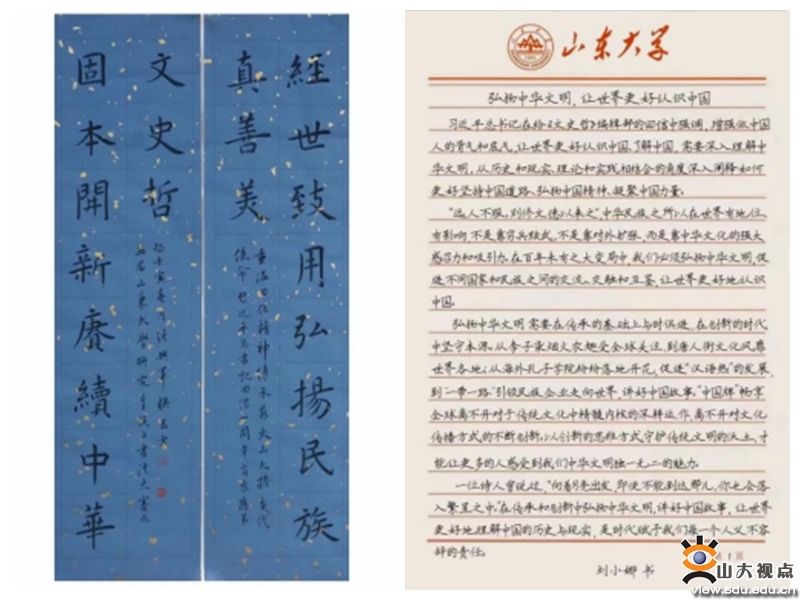 經世致用弘揚民族
真善美
固本開新賡續中華
文史哲
山东大学
弘扬中华文明,让世界更好认识中国
习近平总书记在给《文史哲》编辑部的回信中强调,增强做中国
人的骨气和底气,让世界更好认识中国、了解中国,需要深入理解中
华文明,从历史和现实、理论和实践相结合的角度深入阐释如何
更好坚持中国道路、弘扬中国精神、凝聚中国力量。
“远人不服,则修文德以来之”中华民族之所以在世界有地位、
有影响,不是靠穷兵黩武,不是靠对外扩张,而是靠中华文化的强大
感召力和吸引力。在百年未有之大变局中,我们必须弘扬中华文明,促
进不同国家和民族之间的交流、交融和互鉴,让世界更好地认识
中国。
弘扬中华文明需要在传承的基础上与时俱进,在创新的时代
中坚守本源。从李子柒烟火农趣受全球关注,到唐人街文化风靡
世界各地;从海外孔子学院纷纷落地开花,促进“汉语热”的发展,
到“一带一路”引领民族企业走向世界,讲好中国故事。“中国辉”畅享
全球离不开对于传统文化中精髓内核的深耕运作,离不开对文化
传播方式的不断创新,以创新的思维方式守护传统文明的沃土,才
能让更多的人感受到我们中华文明独一无二的魅力。
一位诗人曾说过,“向着月亮出发,即使不能到达那儿,你也会落
入繁星之中”在传承和创新中弘扬中华文明,讲好中国故事,让世界
更好地理解中国的历史与现实,是时代赋予我们每一个人义不容
辞的责任。
刘小娜 书
山大视点
view.sdu.edu.cn